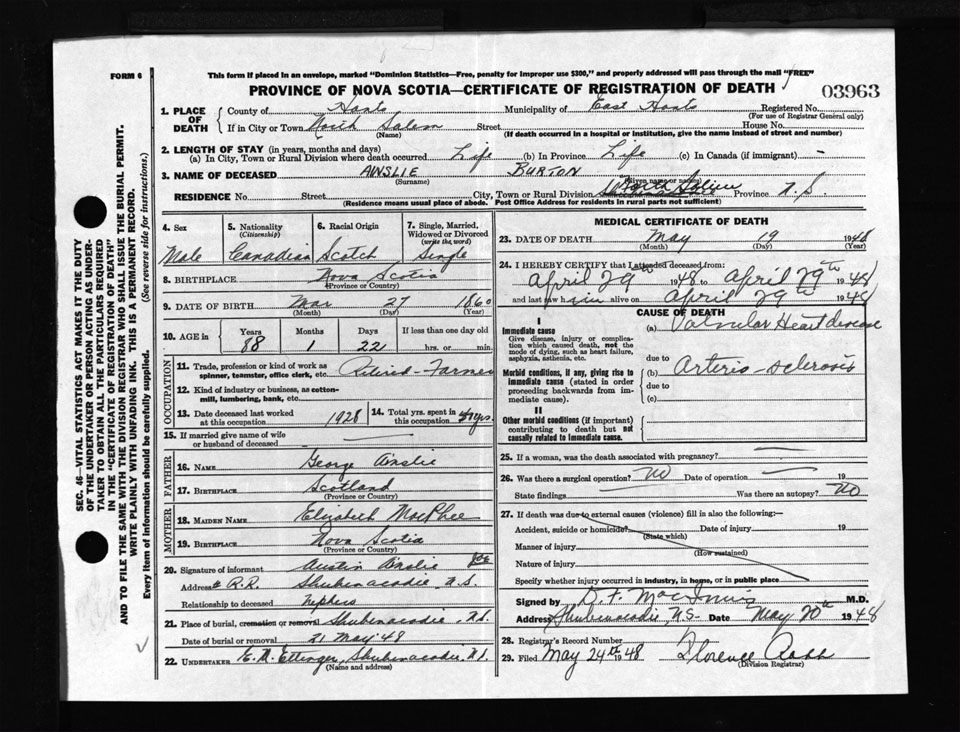 FORM 6
This form if placed in an envelope, marked "Dominion Statistics—Free, penalty for improper use $300," and properly addressed will pass through the mail "FREE"
PROVINCE OF NOVA SCOTIA—CERTIFICATE OF REGISTRATION OF DEATH
03963
1. PLACE OF DEATH
County of Hants Municipality of East Hants Registered No.
(For use of Registrar General only)
If in City or Town North Salem Street House No.
(Name) (If death occurred in a hospital or institution, give the name instead of street and number)
2. LENGTH OF STAY (in years, months and days)
(a) In City, Town or Rural Division where death occurred Life (b) In Province Life (c) In Canada (if immigrant) -
3. NAME OF DECEASED AINSLIE BURTON
(Surname) (Given name or names)
RESIDENCE No. Street City, Town or Rural Division North Salem Province N.S.
(Residence means usual place of abode. Post Office Address for residents in rural parts not sufficient)
4. Sex
Male
5. Nationality
(Citizenship)
Canadian
6. Racial Origin
Scotch
7. Single, Married, Widowed or Divorced
(write the word)
Single
8. BIRTHPLACE Nova Scotia
(Province or Country)
9. DATE OF BIRTH Mar 27 1860
(Month) (Day) (Year)
10. AGE in Years Months Days If less than one day old
88 1 22 hrs. or min.
OCCUPATION
11. Trade, profession or kind of work as spinner, teamster, office clerk, etc. Retired-Farmer
12. Kind of industry or business, as cotton-mill, lumbering, bank, etc.
13. Date deceased last worked at this occupation 1928
14. Total yrs. spent in this occupation yrs.
15. If married give name of wife or husband of deceased
FATHER
16. NAME George Ainslie
17. BIRTHPLACE Scotland
(Province or Country)
MOTHER
18. MAIDEN NAME Elizabeth MacPhee
19. BIRTHPLACE Nova Scotia
(Province or Country)
20. Signature of informant Austin Ainslie
Address R.R. Shubenacadie N.S.
Relationship to deceased Nephew
21. Place of burial, cremation or removal Shubenacadie, N.S.
Date of burial or removal 21 May '48
22. UNDERTAKER E. M. Ettinger, Shubenacadie, N.S.
(Name and address)
MEDICAL CERTIFICATE OF DEATH
23. DATE OF DEATH May 19 1948
(Month) (Day) (Year)
24. I HEREBY CERTIFY that I attended deceased from:
April 29th 1948 to April 29th 1948
and last saw him alive on April 29th 1948
CAUSE OF DEATH
I
Immediate cause
Give disease, injury or complication which caused death, not the mode of dying, such as heart failure, asphyxia, asthenia, etc.
(a) Valvular Heart disease
due to
Morbid conditions, if any, giving rise to immediate cause (stated in order proceeding backwards from immediate cause).
(b) Arterio-sclerosis
due to
(c)
II
Other morbid conditions (if important) contributing to death but not causally related to immediate cause.
25. If a woman, was the death associated with pregnancy?
26. Was there a surgical operation? No Date of operation 19
State findings Was there an autopsy? No
27. If death was due to external causes (violence) fill in also the following:—
Accident, suicide or homicide? Date of injury 19
(State which)
Manner of injury
(How sustained)
Nature of injury
Specify whether injury occurred in industry, in home, or in public place
Signed by D. F. MacInnis M.D.
Address Shubenacadie, N.S. Date May 20th 1948
28. Registrar's Record Number
29. Filed May 24th 1948 Florence
(Division Registrar)
SEC. 46—VITAL STATISTICS ACT MAKES IT THE DUTY
OF THE UNDERTAKER OR PERSON ACTING AS UNDER-
TAKER TO OBTAIN ALL THE PARTICULARS REQUIRED
IN THE "CERTIFICATE OF REGISTRATION OF DEATH"
AND TO FILE THE SAME WITH THE DIVISION REGISTRAR WHO SHALL ISSUE THE BURIAL PERMIT.
WRITE PLAINLY WITH UNFADING INK. THIS IS A PERMANENT RECORD.
Every item of information should be carefully supplied. (See reverse side for instructions.)